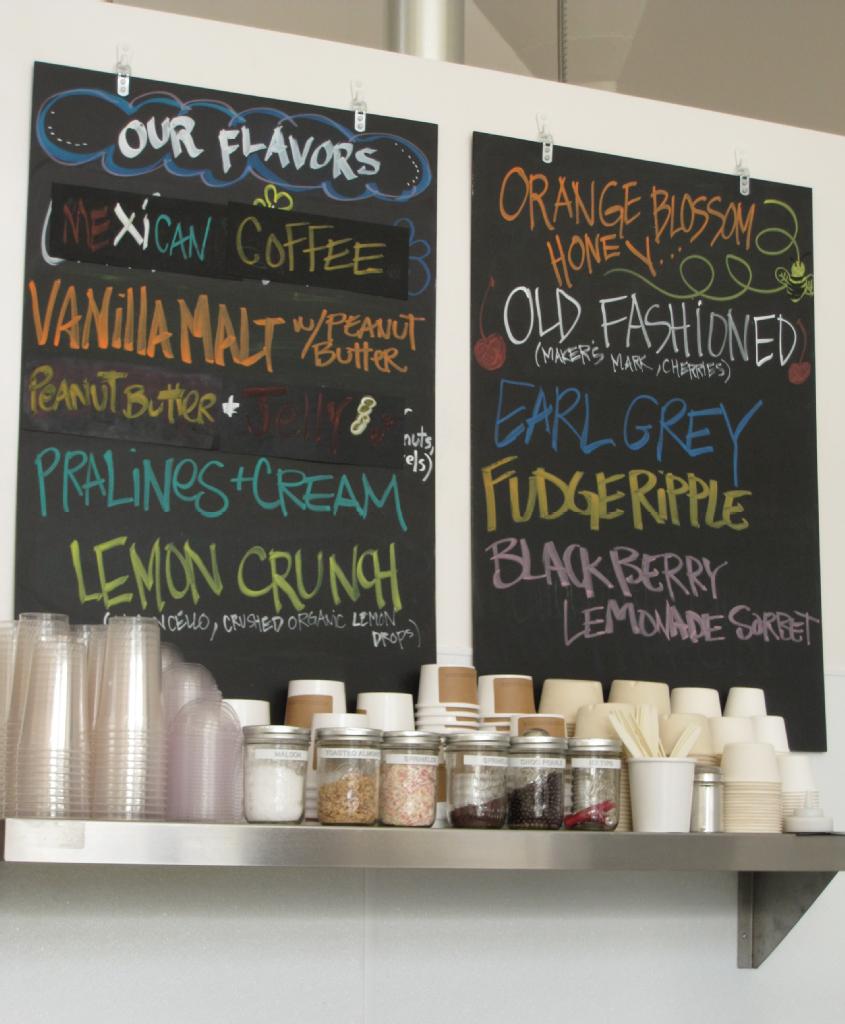 OUR FLAVORS
MEXiCAN COFFEE
VANillA MALT W/PEANUT
BUTTER
PEANUT BUTTER + Jelly
nuts,
els)
PRALINES + CREAM
LEMON CRUNCH
CELLO, CRUSHED ORGANIC LEMON
DROPS)
ORANGE BLOSSOM
HONEY...
OLD FASHIONED
(MAKER'S MARK, CHERRIES)
EARL GREY
FUDGE RiPPLE
BLACKBERRY
LEMONADE SORBET